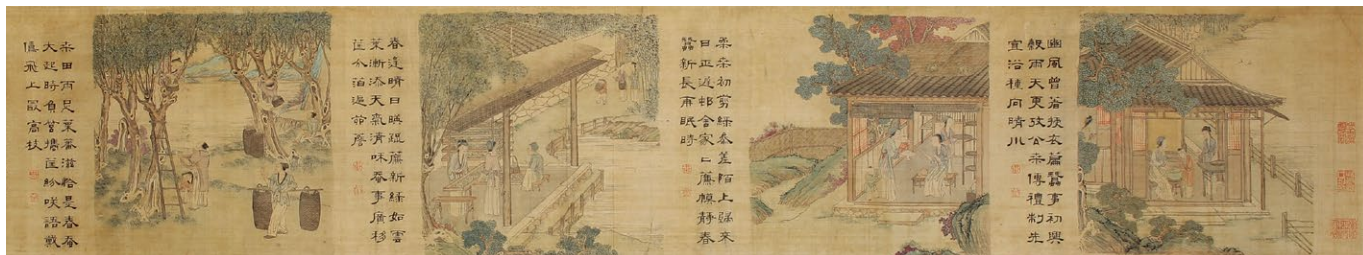 豳風曾著授衣篇蠶事初興
穀雨天更攷公桑傳禮制先
宜浴種向晴川
柔桑初剪綠參差陌上歸來
日正遲邨舍家〻簾幙靜春
蠶新長再眠時
春遲晴日暎疏簾新綠如雲
葉漸添天氣清和春事廣移
筐分箔遍
桑田雨足葉蕃滋恰是春蠶
大起時負筥攜筐紛笑語戴
鵀飛上最高枝